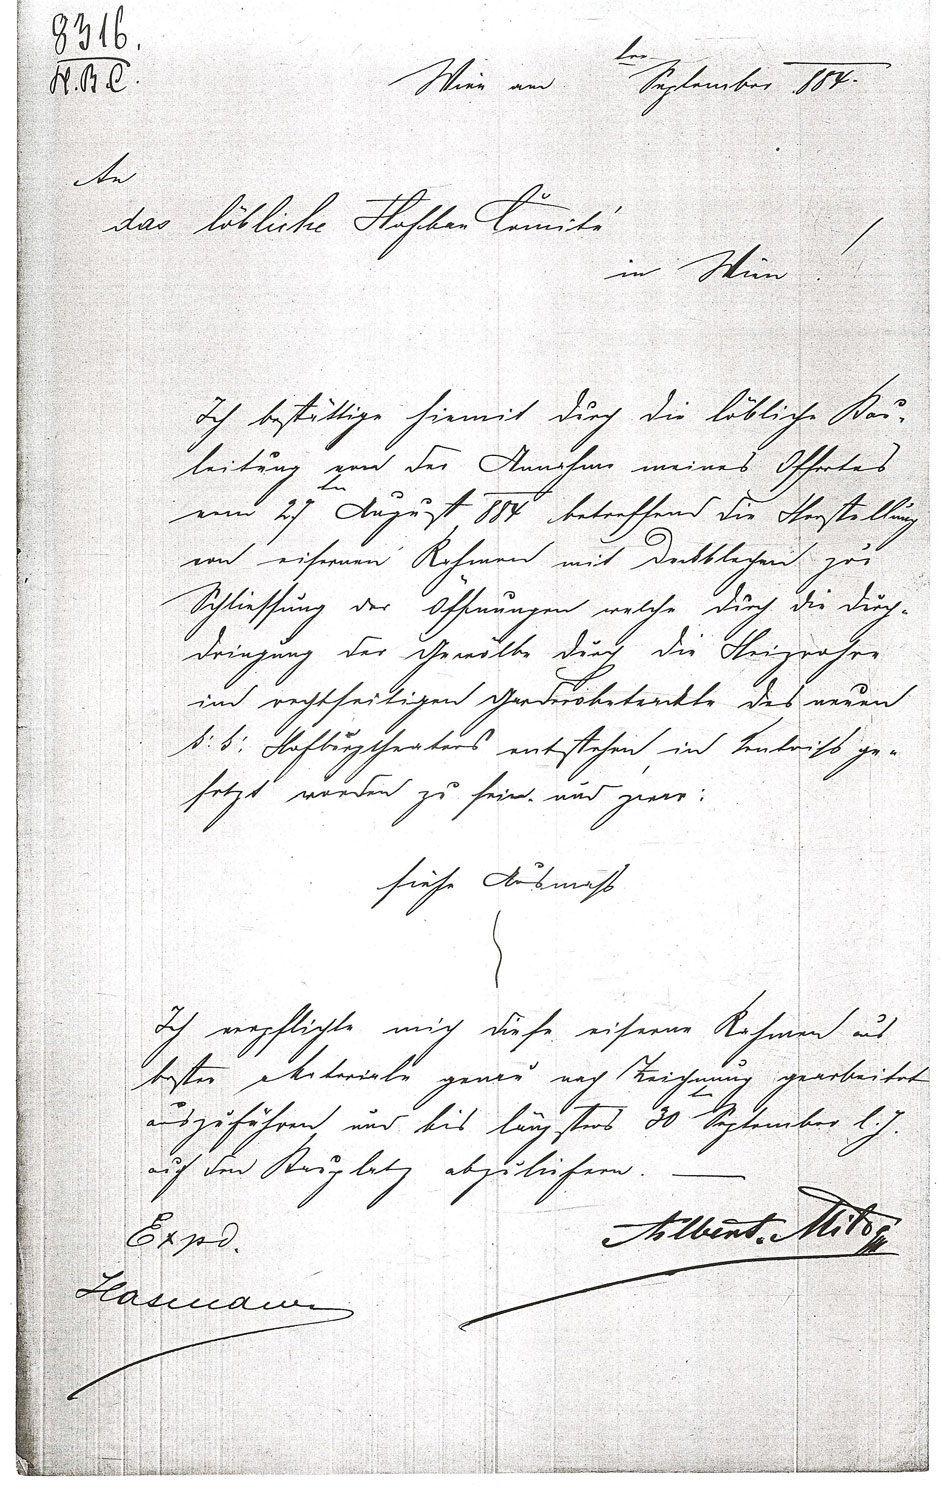 8316.
H.B.C.
Wien am ten September 884.
An
das löbliche Hofbau Comité
in Wien !
Ich bestättige hiemit durch die löbliche Bau-
leitung von der Annahme meines Offertes
vom 27ten August 884 betreffend die Herstellung
von eisernen Rahmen mit Deckblechen zur
Schliessung der Öffnungen welche durch die Durch-
dringung der Gewölbe durch die Heizrohre
im rechtseitigen Garderobetrackte des neuen
k: k: Hofburgtheaters entstehen, in Kentniss ge-
setzt worden zu sein. und zwar:
siehe Ausmass
Ich verpflichte mich diese eiserne Rahmen aus
bester Materiale genau nach Zeichnung gearbeitet
auszuführen und bis längstens 30ten September l. J.
auf den Bauplatz abzuliefern.
Expd.
Albert Milde